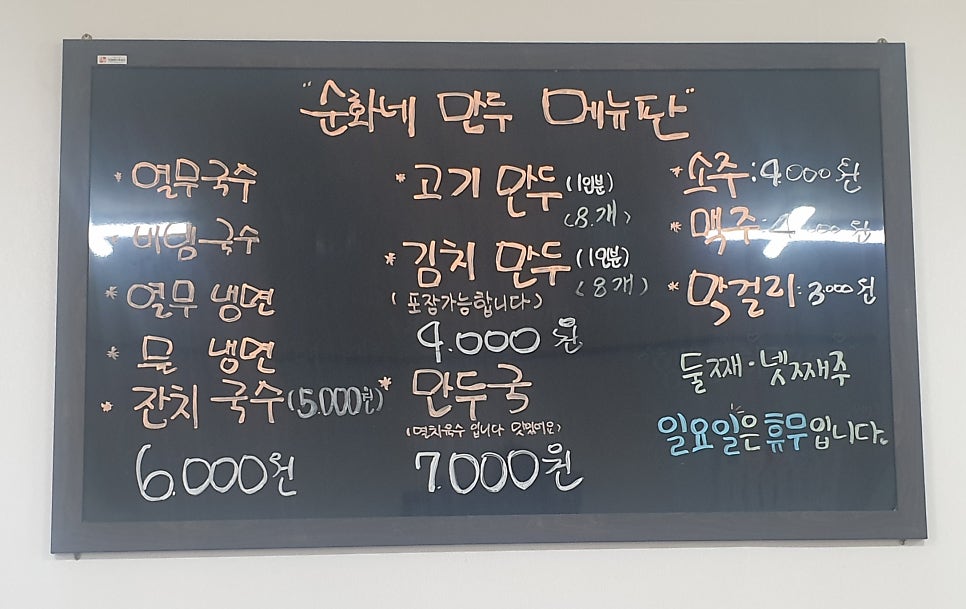 "순화네 만두 메뉴판"
* 열무국수
* 비빔국수
* 열무 냉면
* 물 냉면
* 잔치 국수 (5.000원)
6.000원
* 고기 만두 (1인분)
(8.개)
* 김치 만두 (1인분)
(8개)
(포장가능합니다)
4.000원
* 만두국
(멸치육수 입니다 맛있어요)
7.000원
* 소주:4.000원
* 맥주:4.000원
* 막걸리:3000원
둘째·넷째주
일요일은 휴무입니다.